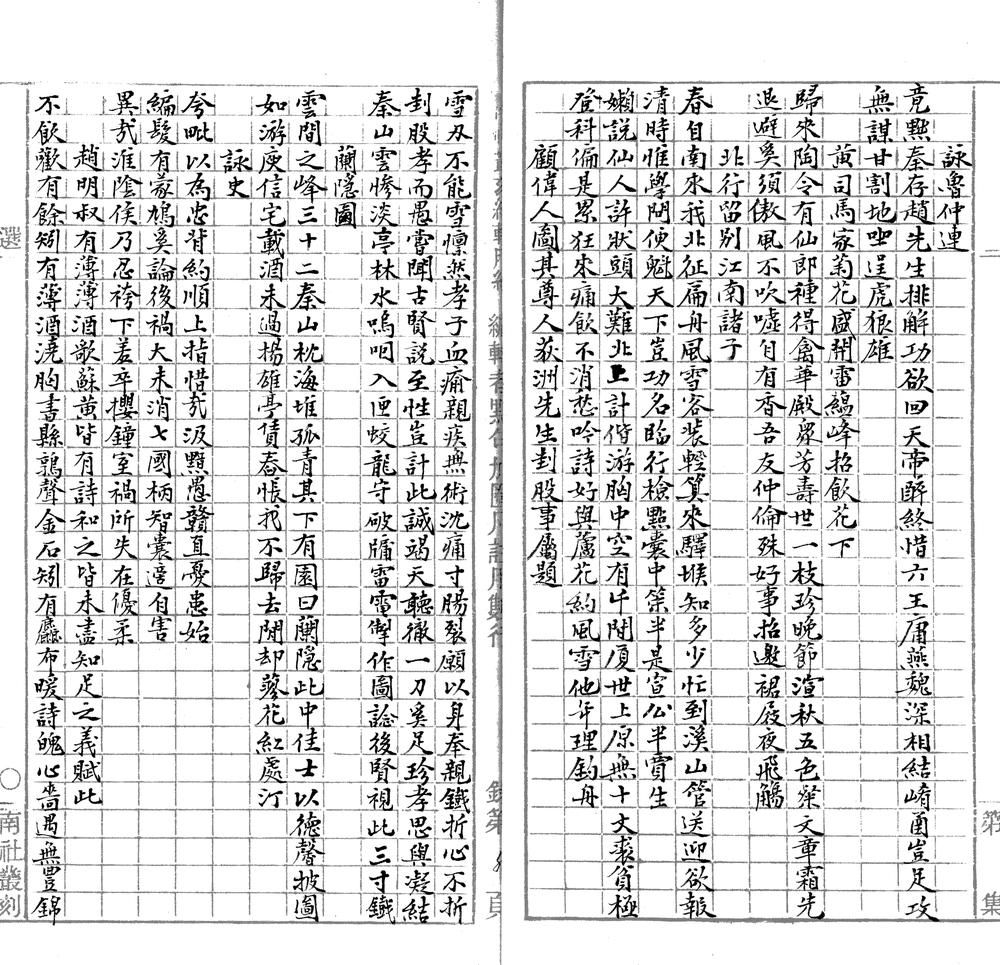 詠魯仲連
竟黜秦存趙先生排解功欲回天帝醉終惜六王庸燕魏深相結崤函豈足攻
無謀甘割地坐逞虎狼雄
黃司馬家菊花盛開雷縕峰招飲花下
歸來陶令有仙郎種得禽華殿眾芳壽世一枝珍晚節渲秋五色粲文章霜先
退避奚須傲風不吹噓自有香吾友仲倫殊好事招邀裙屐夜飛觴
北行留別江南諸子
春自南來我北征扁舟風雪客裝輕算來驛堠知多少忙到溪山管送迎欲報
清時惟學問便魁天下豈功名臨行檢點囊中策半是宣公半賈生
嬾說仙人許狀頭大難北上計偕游胸中空有千間廈世上原無十丈裘負極
登科偏是累狂來痛飲不消愁吟詩好與蘆花約風雪他年理釣舟
顧偉人圖其尊人荻洲先生刲股事屬題
雪刃不能雪懍然孝子血痛親疾無術沈痛寸腸裂願以身奉親鐵折心不折
刲股孝而愚嘗聞古賢說至性豈計此誠竭天聽徹一刀奚足珍孝思與凝結
秦山雲慘淡亭林水嗚咽入匣蛟龍守破牖雷電掣作圖諗後賢視此三寸鐵
蘭隱圖
雲間之峰三十二秦山枕海堆孤青其下有園曰蘭隱此中佳士以德馨披圖
如游庾信宅載酒未過揚雄亭債舂悵我不歸去閒却蓼花紅處汀
詠史
夸毗以為忠背約順上指惜哉汲黯愚贛直憂患始
編髮有蒙鳩奚論後禍大未消七國柄智囊適自害
異哉淮陰侯乃忍袴下羞卒攖鐘室禍所失在優柔
趙明叔有薄薄酒歌蘇黃皆有詩和之皆未盡知足之義賦此
不飲歡有餘矧有薄酒澆胸書縣鶉聲金石矧有麤布暖詩魄心嗇遇無豐錦
選
南社叢刻
集